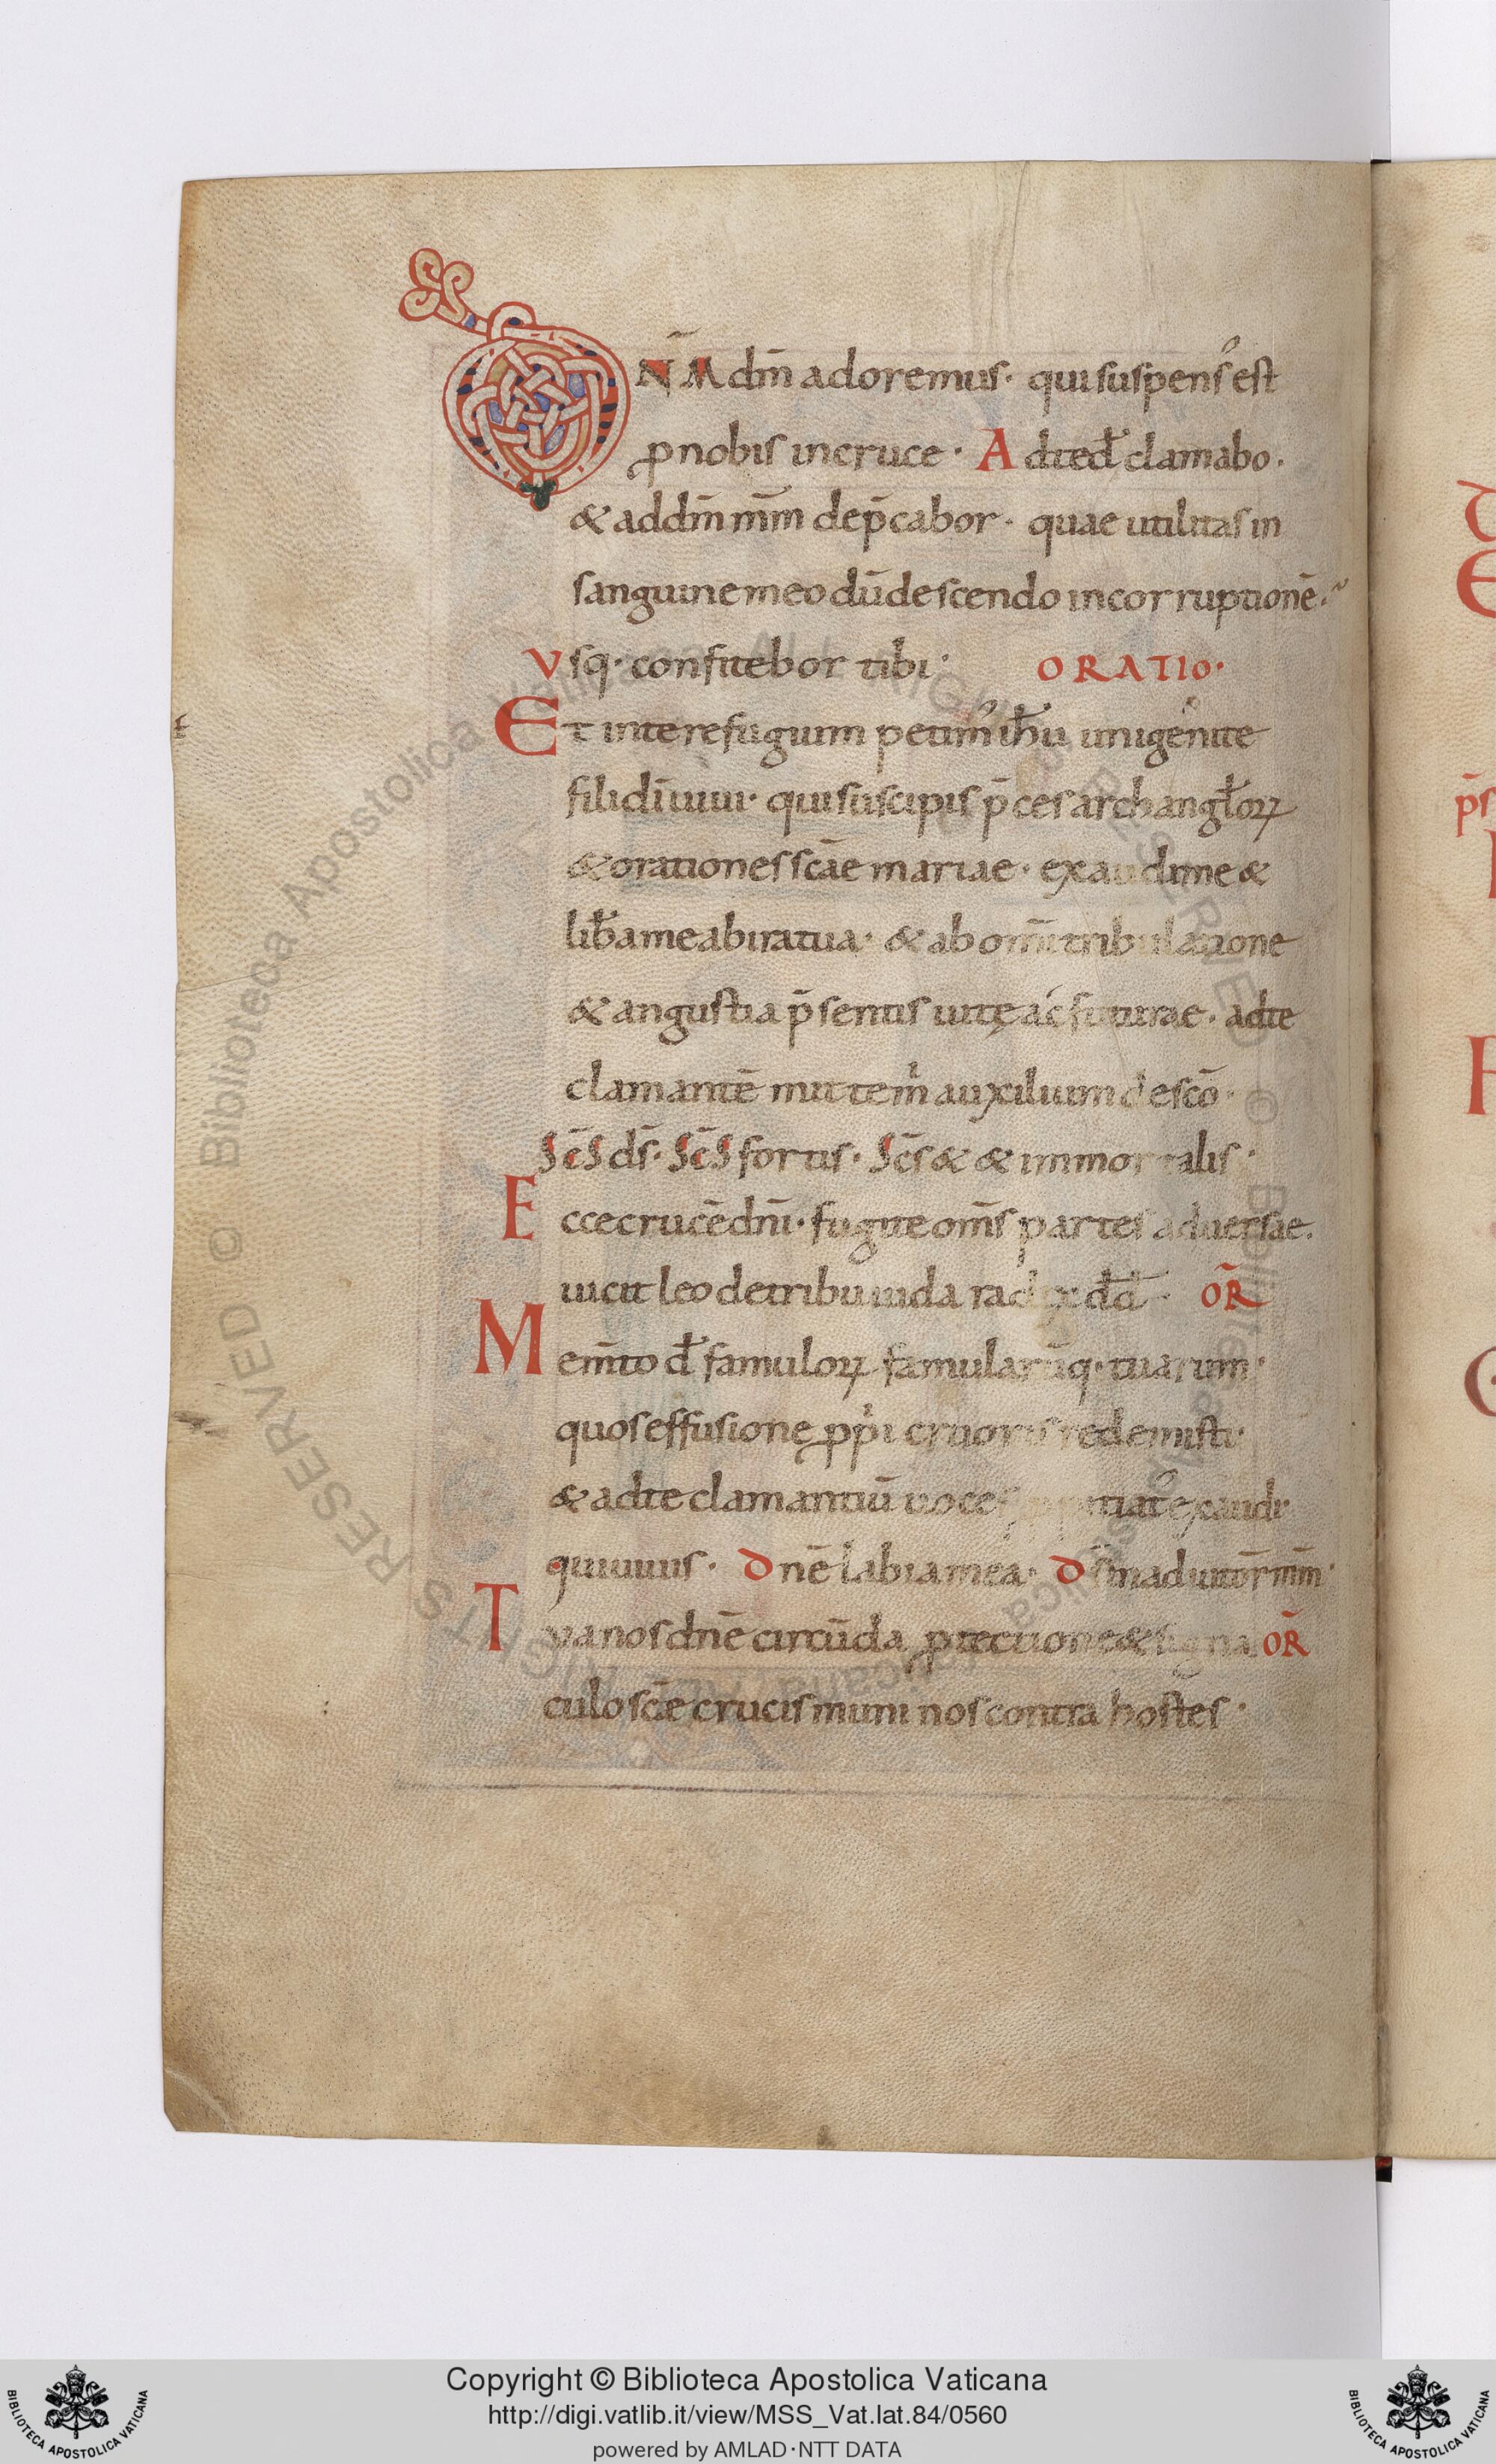 ON̄M dm̄ adoremus· qui suspens᾽ est
ꝓ nobis in cruce · Ad te dꝰ clamabo·
& ad dm̄ mm̄ dep̄cabor · quae utilitas in
sanguine meo dū descendo in corruptionē·
vsq· confitebor tibi· ORATIO·
Et inte refugium petim᾽ ihū unigenite
fili dī uiui· qui suscipis p̄ces archangłoꝝ
& orationes scāe mariae· exaudi me &
lib̄a me ab ira tua· & ab om̄i tribulatione
& angustia p̄sentis uitę ac futurae· ad te
clamantē mitte m̓ auxilium de scō·
Sc̄s ds̄· Sc̄s fortis· Sc̄s & & immortalis·
Ecce crucē dnī· fugite oms̄ partes aduersae·
uicit leo de tribu iuda radix dd̄· OR̄
Mem̄to dꝰ famuloꝝ famularūq· tuarum·
quos effusione ꝓpi cruoris redemisti·
& ad te clamantiū uoces
qui uiuis· Dnē labia mea· Ds̄ in adiutor̄ mm̄·
Tua nos dnē circūda ꝓtectione & signa OR̄
culo scē crucis muni nos contra hostes·
Copyright © Biblioteca Apostolica Vaticana
http://digi.vatlib.it/view/MSS_Vat.lat.84/0560
powered by AMLAD·NTT DATA
BIBLIOTECA APOSTOLICA VATICANA
BIBLIOTECA APOSTOLICA VATICANA